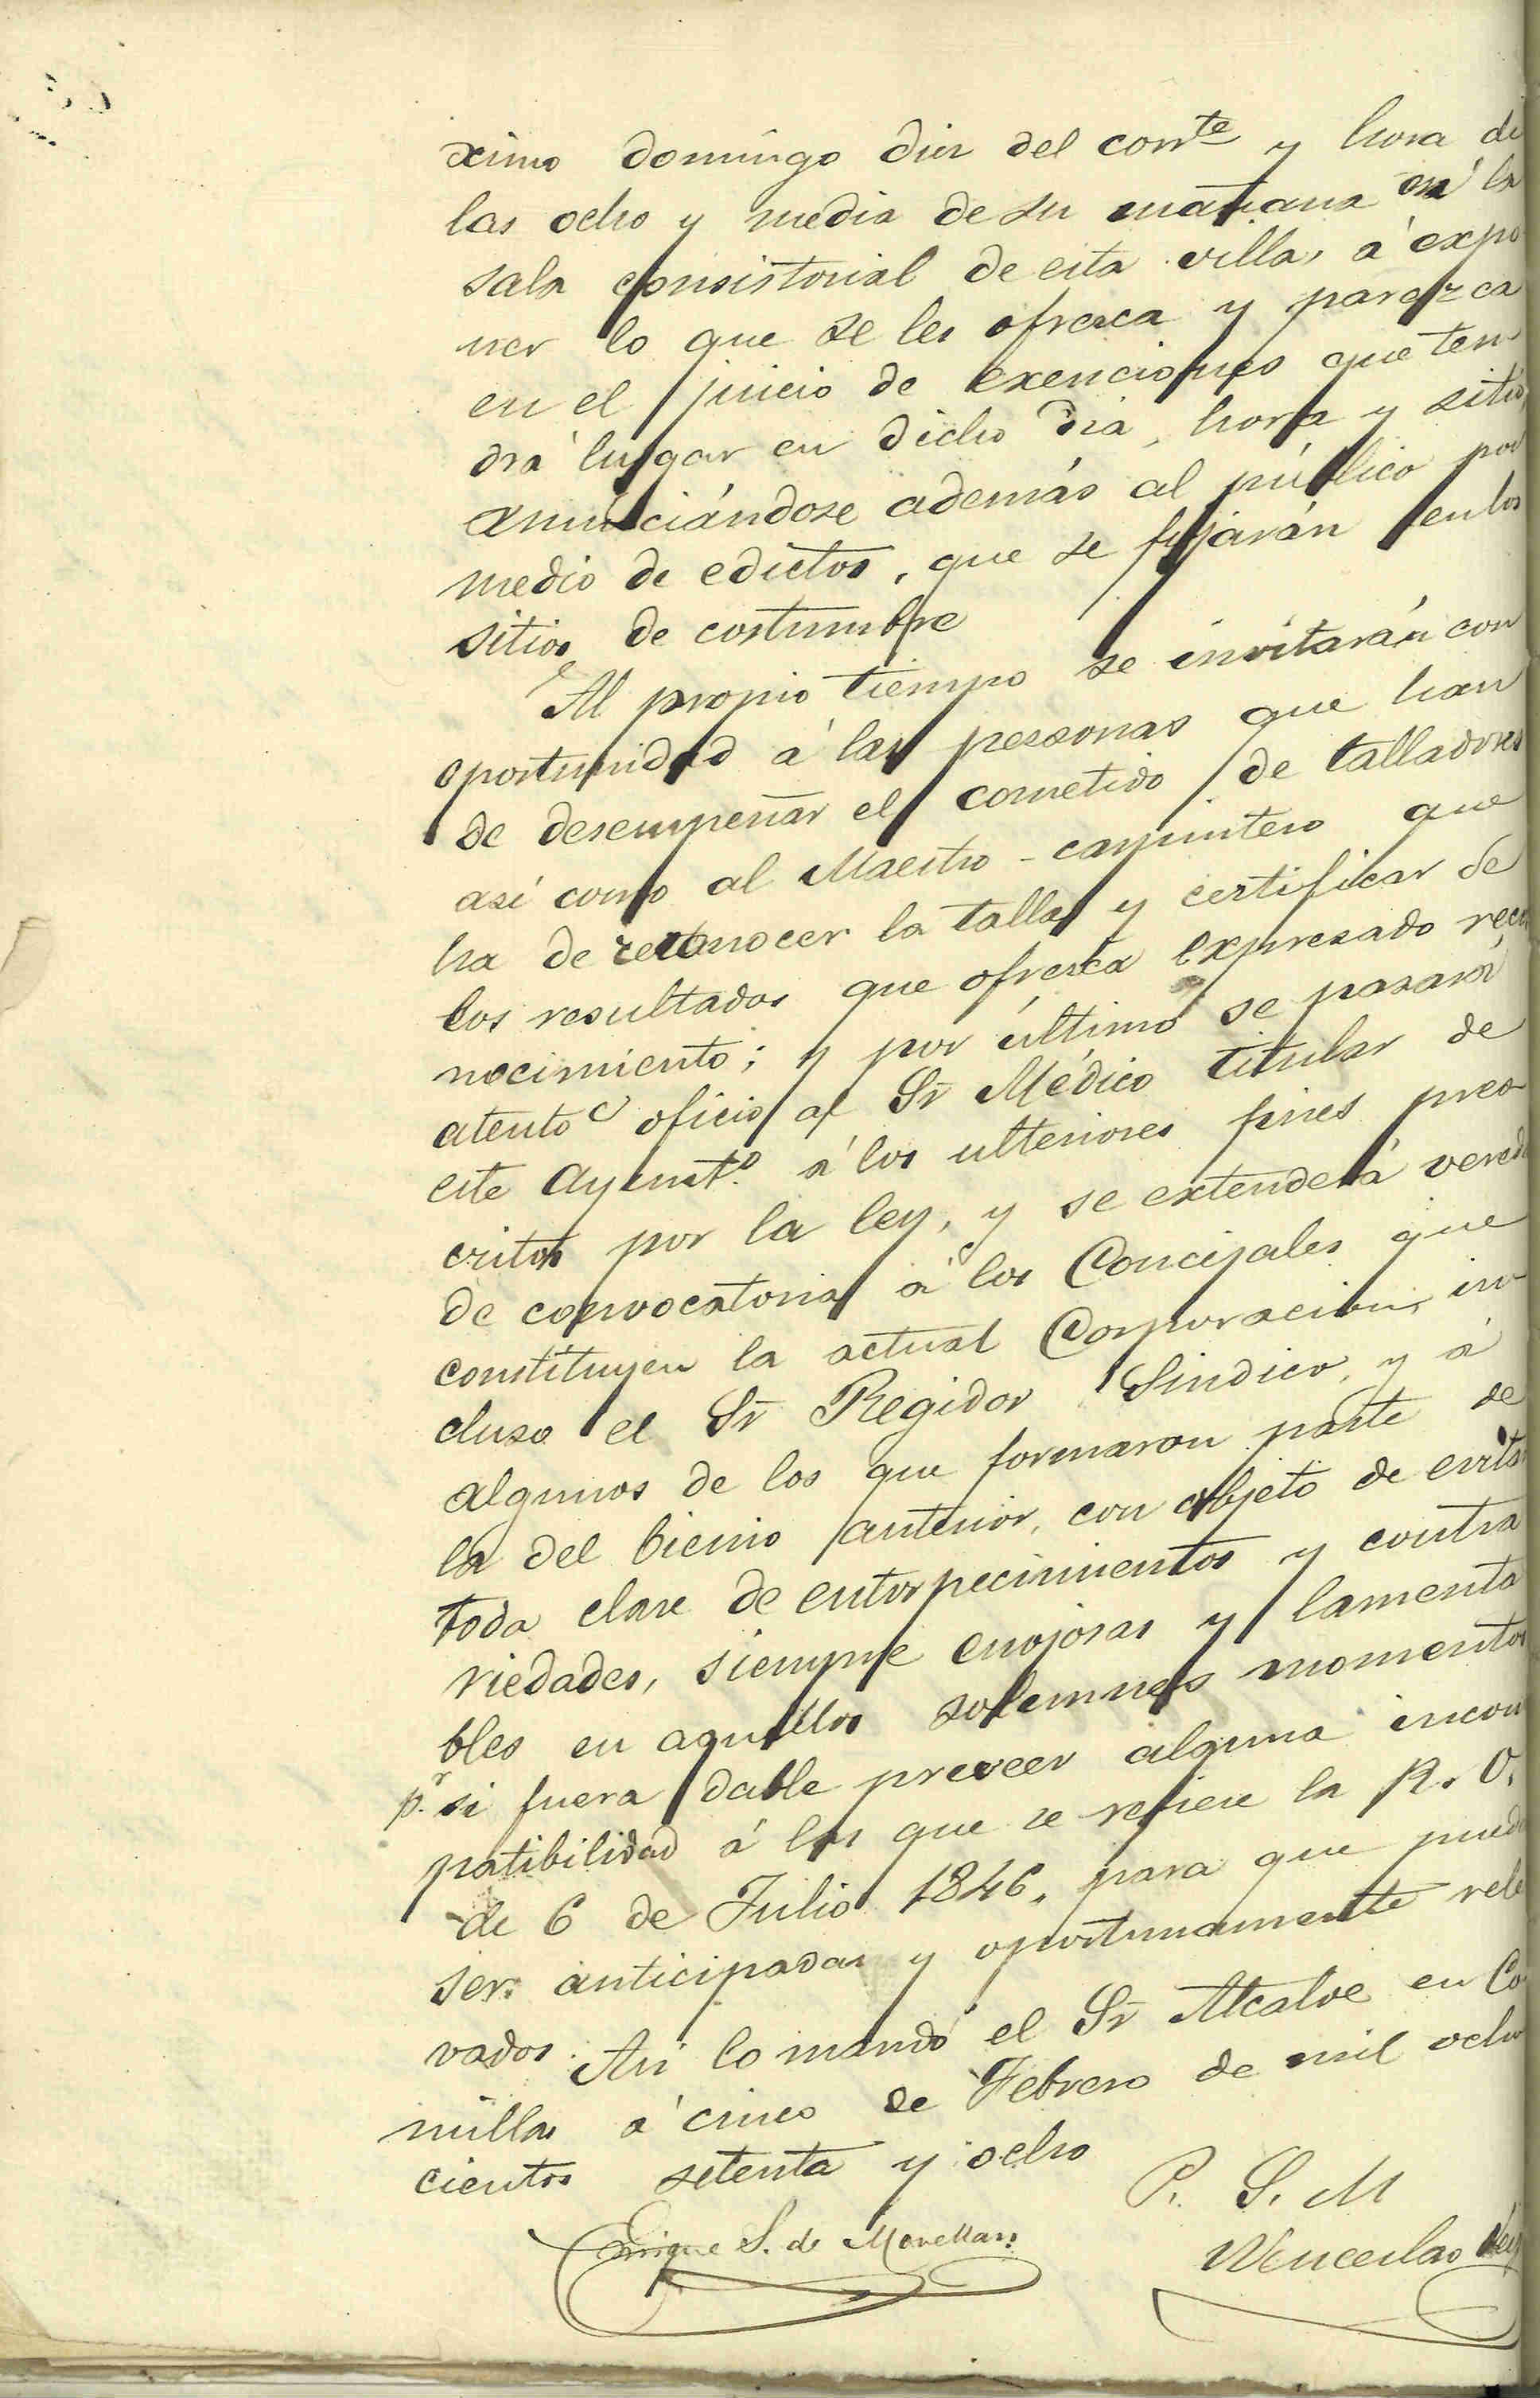 ximo domingo diez del corrte y hora de
las ocho y media de su mañana en la
sala consistorial de esta villa, á expo
ner lo que se les ofrezca y parezca
en el juicio de exenciones que ten-
drá lugar en dicho dia, hora y sitio,
anunciándose además al público por
medio de edictos, que se fijarán en los
sitios de costumbre
Al propio tiempo se invitarán con
oportunidad á las personas que han
de desempeñar el cometido de talladores
asi como al Maestro-carpintero que
ha de reconocer la talla y certificar de
los resultados que ofrezca expresado reco
nocimiento; y por último se pasará
atento oficio al Sr Médico titular de
este Ayunt.o á los ulteriores fines pres-
critos por la ley, y se extenderá vereda
de convocatoria á los Concejales que
constituyen la actual Corporacion, in-
cluso el Sr Regidor Sindico, y á
algunos de los que formaron parte de
la del bienio anterior, con objeto de evitar
toda clase de entorpecimientos y contra
riedades, siempre enojosas y lamenta
bles en aquellos solemnes momentos
p.r si fuera dable preveer alguna incom
patibilidad á las que se refiere la R. O.
de 6 de Julio 1846, para que puedan
ser anticipada y oportunamente rele
vados. Asi lo mandó el Sr Alcalde en Co-
millas á cinco de Febrero de mil ocho
cientos setenta y ocho
P. S. M
Enrique S. de Movellan
Wenceslao